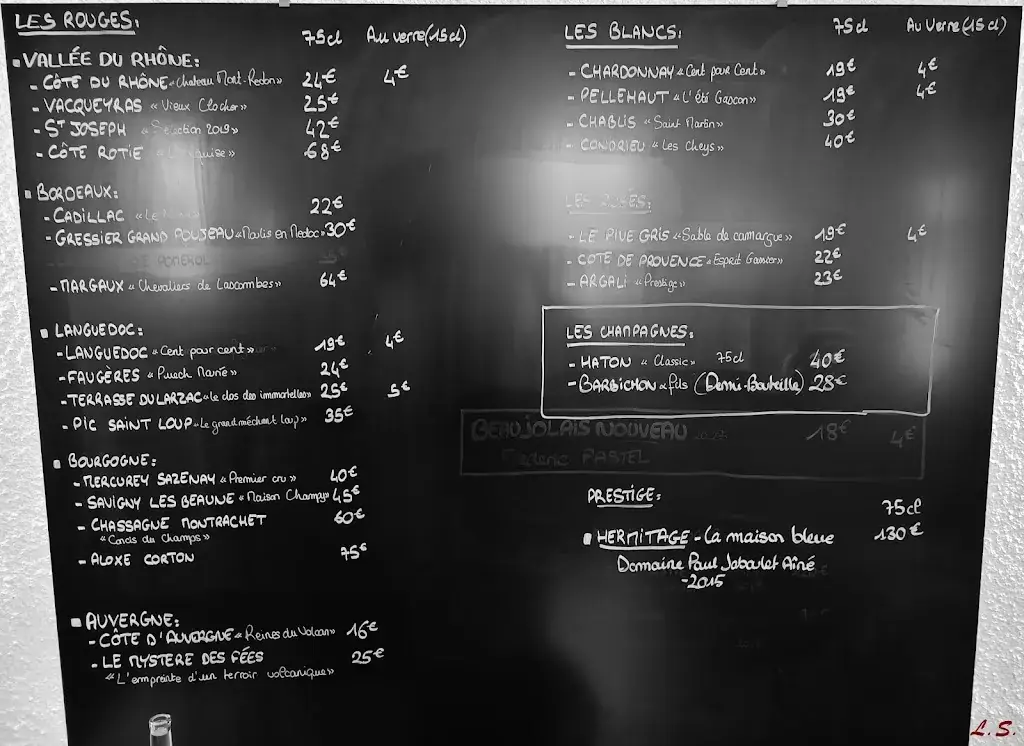 LES ROUGES: 75cl Au verre(15cl)
VALLÉE DU RHÔNE:
- CÔTE DU RHÔNE «Chateau Mont-Redon» 24€ 4€
- VACQUEYRAS «Vieux Clocher» 25€
- ST JOSEPH 2019» 42€
- CÔTE ROTIE 68€
BORDEAUX:
- CADILLAC 22€
- GRESSIER GRAND POUJEAU «Moulis en Medoc» 30€
POMEROL
- MARGAUX «Chevaliers de Lascombes» 64€
LANGUEDOC:
- LANGUEDOC «Cent pour cent» 19€ 4€
- FAUGÈRES «Puech 24€
- TERRASSE DU LARZAC «le clos des immortelles» 25€ 5€
- PIC SAINT LOUP «Le grand méchant loup» 35€
BOURGOGNE:
- MERCUREY SAZENAY «Premier cru» 40€
- SAVIGNY LES BEAUNE «Maison Champy» 45€
- CHASSAGNE MONTRACHET 60€
du Champs»
- ALOXE CORTON 75€
AUVERGNE:
- CÔTE D'AUVERGNE «Reines du Volcan» 16€
- LE MYSTERE DES FÉES 25€
«L'empreinte d'un terroir volcanique»
LES BLANCS: 75cl Au Verre (15cl)
- CHARDONNAY «Cent pour Cent» 19€ 4€
- PELLEHAUT «L'été Gascon» 19€ 4€
- CHABLIS «Saint Martin» 30€
- CONDRIEU «Les Cheys» 40€
LES ROSÉS:
- LE PIVE GRIS «Sable de camargue» 19€ 4€
- COTE DE PROVENCE «Esprit Gassier» 22€
- ARGALI «Prestige» 23€
LES CHAMPAGNES:
- HATON «Classic» 75cl 40€
- BARBICHON & fils (Demi-Bouteille) 28€
BEAUJOLAIS NOUVEAU 18€ 4€
PASTEL
PRESTIGE: 75cl
HERMITAGE - La maison bleue 130€
Domaine Paul Jaboulet Aîné
-2015
L.S.